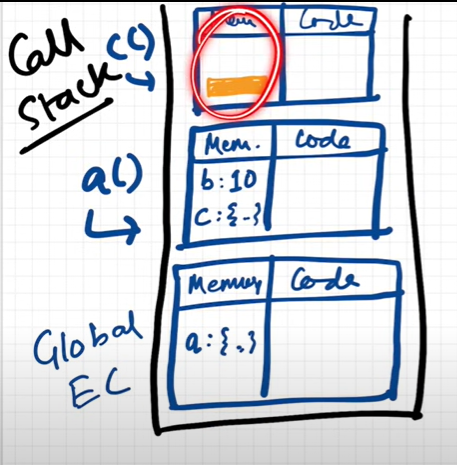 Call
Stack
c()
Mem Code
a()
Mem. Code
b:10
c:{-}
Global
EC
Memory Code
a:{.}